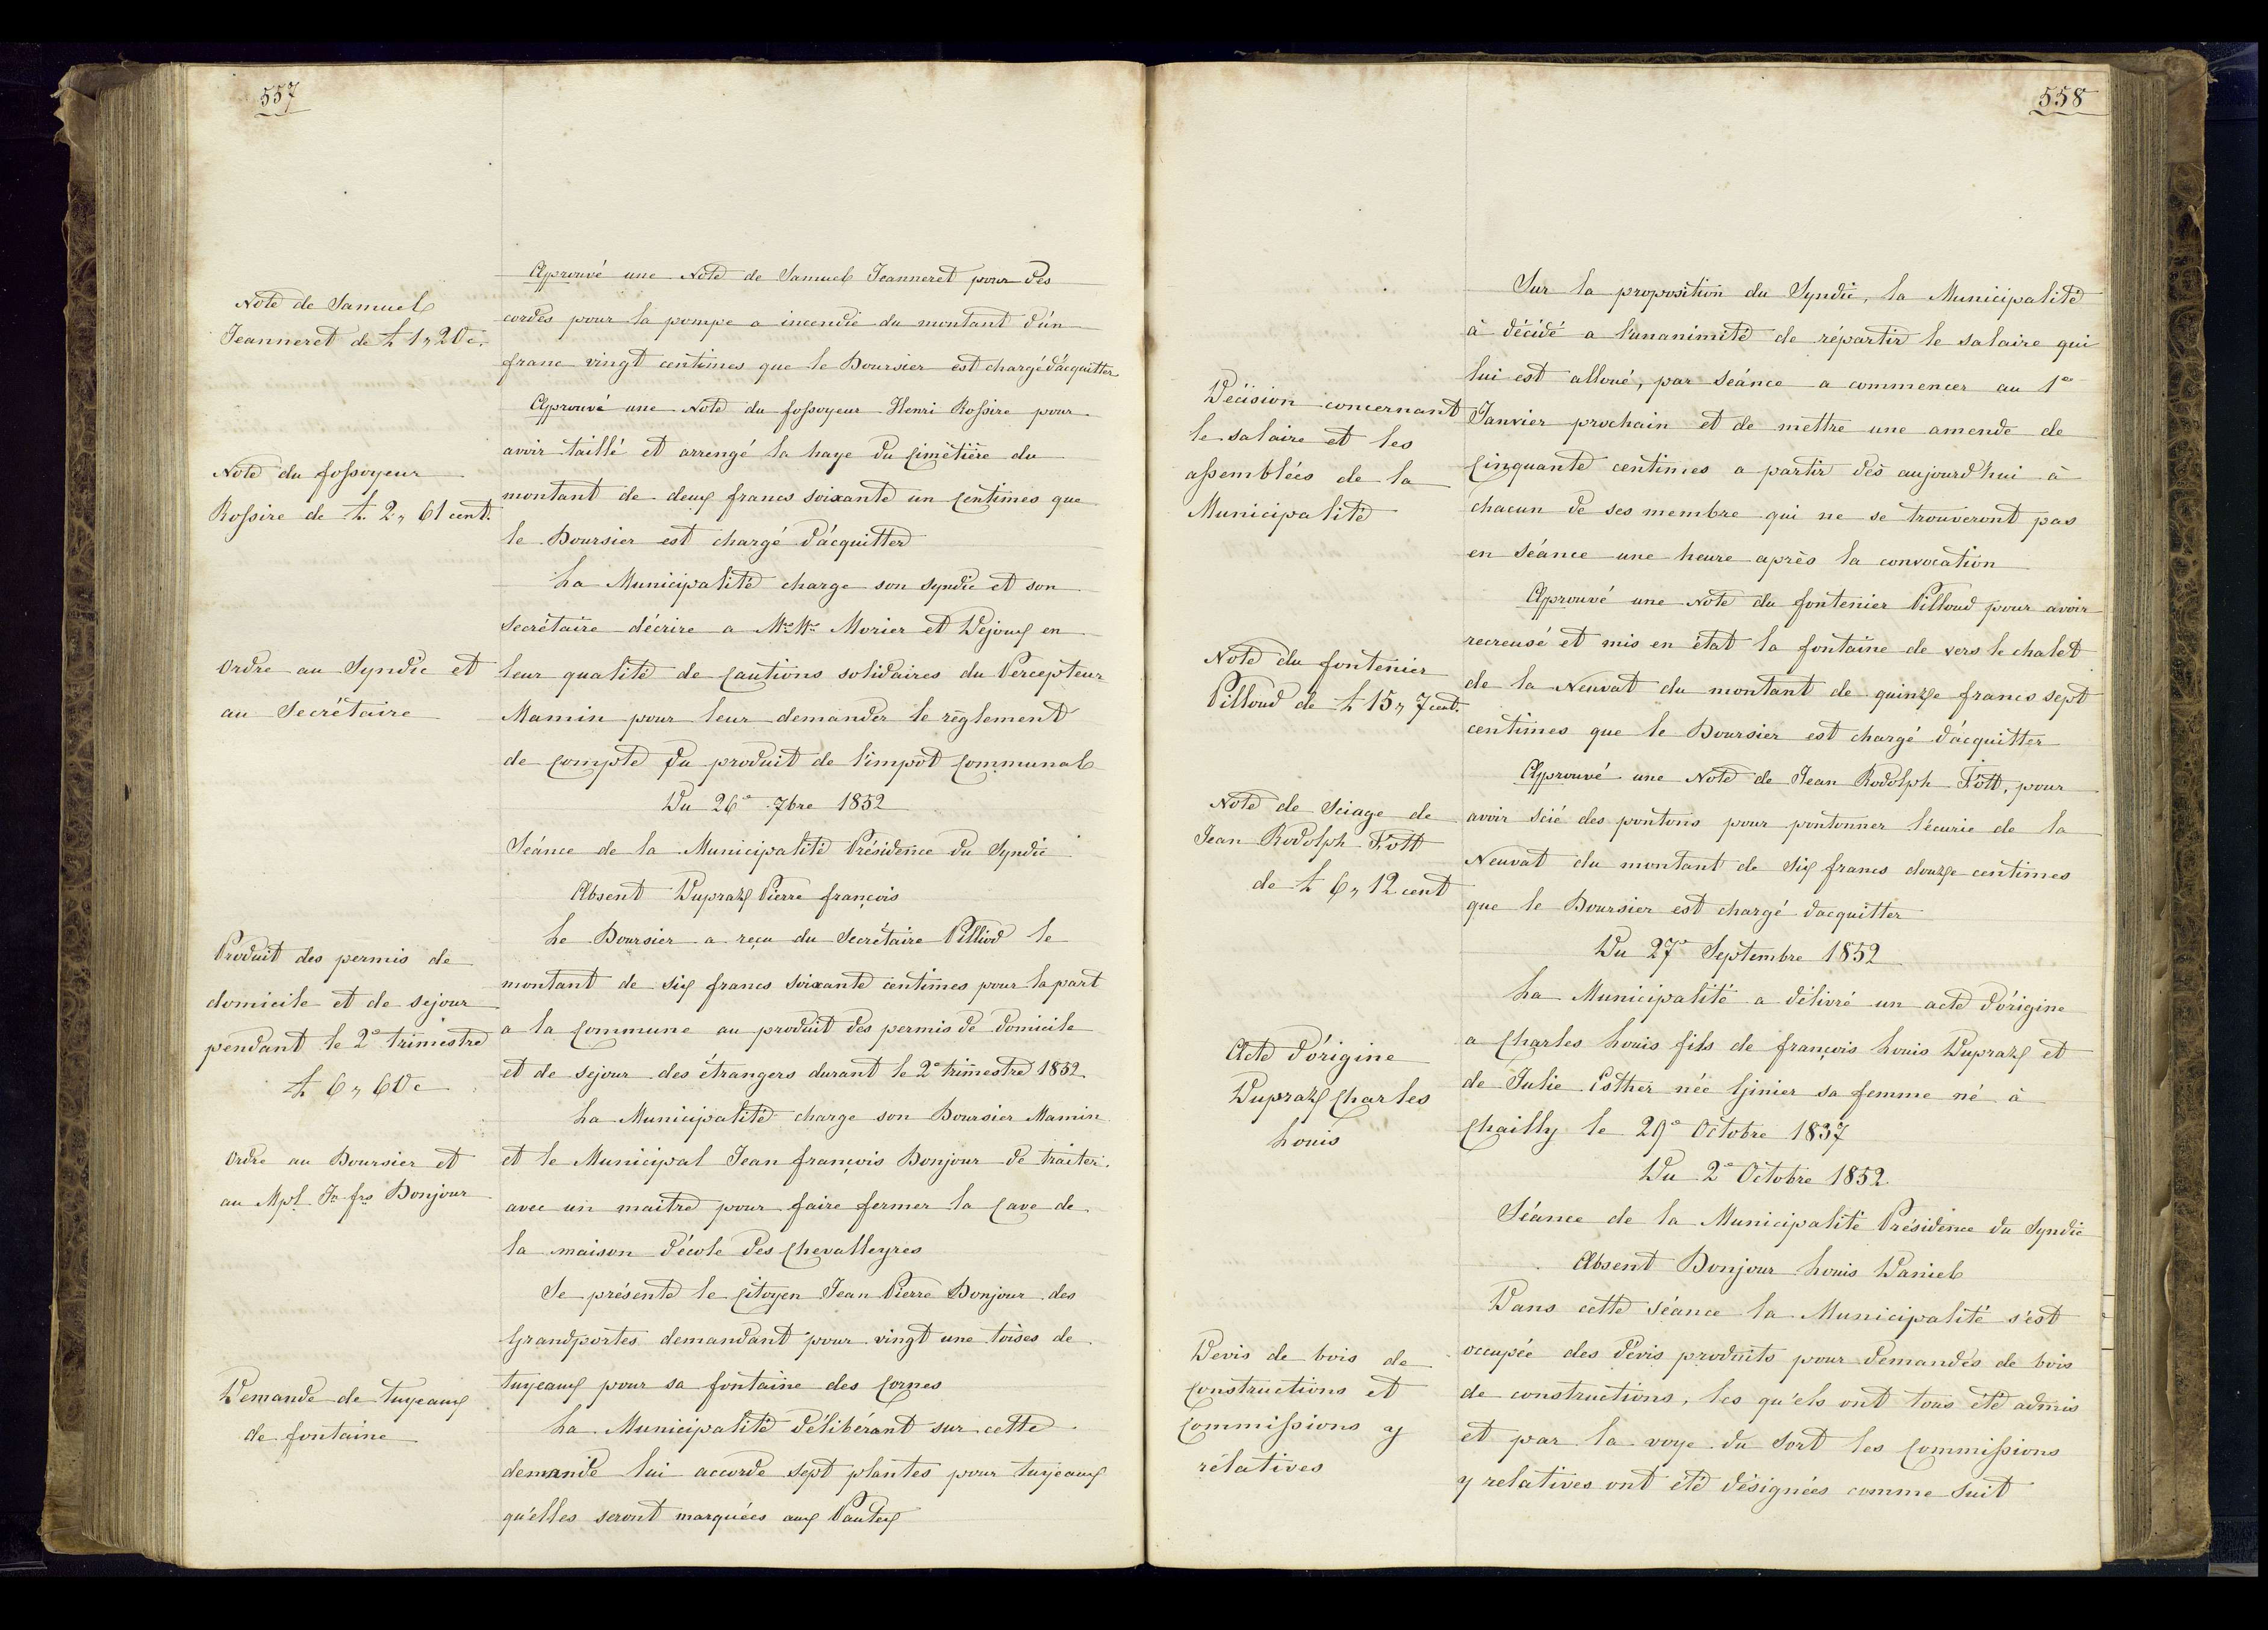 557
Note de Samuel
Jeanneret de £ 1,, 20 c.
Approuvé une Note de Samuel Jeanneret pour des
cordes pour la pompe a incendie du montant d'un
franc vingt centimes que le Boursier est chargé d'acquitter
Note du fossoyeur
Rossire de £. 2,, 61 cent.
Approuvé une Note du fossoyeur Henri Rossire pour
avoir taillé et arrengé la haye du Cimétière du
montant de deux francs soixante un Centimes que
le Boursier est chargé d'acquitter
Ordre au Syndic et
au Secrétaire
La Municipalité charge son syndic et son
Secrétaire d'écrire a Mrs Mrs Morier et Dejoux en
leur qualité de Cautions solidaires du Percepteur
Mamin pour leur demander le règlement
de Compte du produit de l'impot Communal
Du 26e 7bre 1852
Séance de la Municipalité Présidence du Syndic
Absent Dupraz Pierre françois
Produit des permis de
domicile et de sejour
pendant le 2e trimestre
£ 6,, 60 c
Le Boursier a reçu du Secrétaire Pilliod le
montant de six francs soixante centimes pour la part
a la Commune au produit des permis de domicile
et de sejour des étrangers durant le 2e trimestre 1852.
Ordre au Boursier et
au Mpl. Jn frs Bonjour
La Municipalité charge son Boursier Mamin
et le Municipal Jean françois Bonjour de traiter
avec un maitre pour faire fermer la Cave de
la maison d'école des Chevalleyres
Demande de tuyeaux
de fontaine
Se présente le Citoyen Jean Pierre Bonjour des
Grandportes demandant pour vingt une toises de
tuyeaux pour sa fontaine des Cornes
La Municipalité délibérant sur cette
demande lui accorde sept plantes pour tuyeaux
qu'elles seront marquées aux Pautex
558
Décision concernant
le salaire et les
assemblées de la
Municipalité
Sur la proposition du Syndic, la Municipalité
à décidé a l'unanimité de répartir le salaire qui
lui est alloué, par Séance a commencer au 1er
Janvier prochain et de mettre une amende de
Cinquante centimes a partir dès aujourd'hui à
chacun de ses membre qui ne se trouveront pas
en Séance une heure après la convocation
Note du fontenier
Pilloud de £ 15,, 7 cent.
Approuvé une Note du fontenier Pilloud pour avoir
recreusé et mis en état la fontaine de vers le chalet
de la Neuvat du montant de quinze francs sept
centimes que le Boursier est chargé d'acquitter
Note de Sciage de
Jean Rodolph Fott
de £ 6,, 12 cent
Approuvé une Note de Jean Rodolph Fott, pour
avoir scié des pontons pour pontonner l'écurie de la
Neuvat du montant de Six francs douze centimes
que le Boursier est chargé d'acquitter
Du 27e Septembre 1852
Acte d'origine
Dupraz Charles
Louis
La Municipalité a délivré un acte d'origine
a Charles Louis fils de françois Louis Dupraz et
de Julie Esther née Ginier sa femme né à
Chailly le 29e Octobre 1837
Du 2e Octobre 1852
Séance de la Municipalité Présidence du Syndic
Absent Bonjour Louis Daniel
Devis de bois de
Constructions et
Commissions y
rélatives
Dans cette Séance la Municipalité s'est
occupée des dévis produits pour demandes de bois
de constructions, les qu'els ont tous été admis
et par la voye du Sort les Commissions
y relatives ont été désignées comme Suit